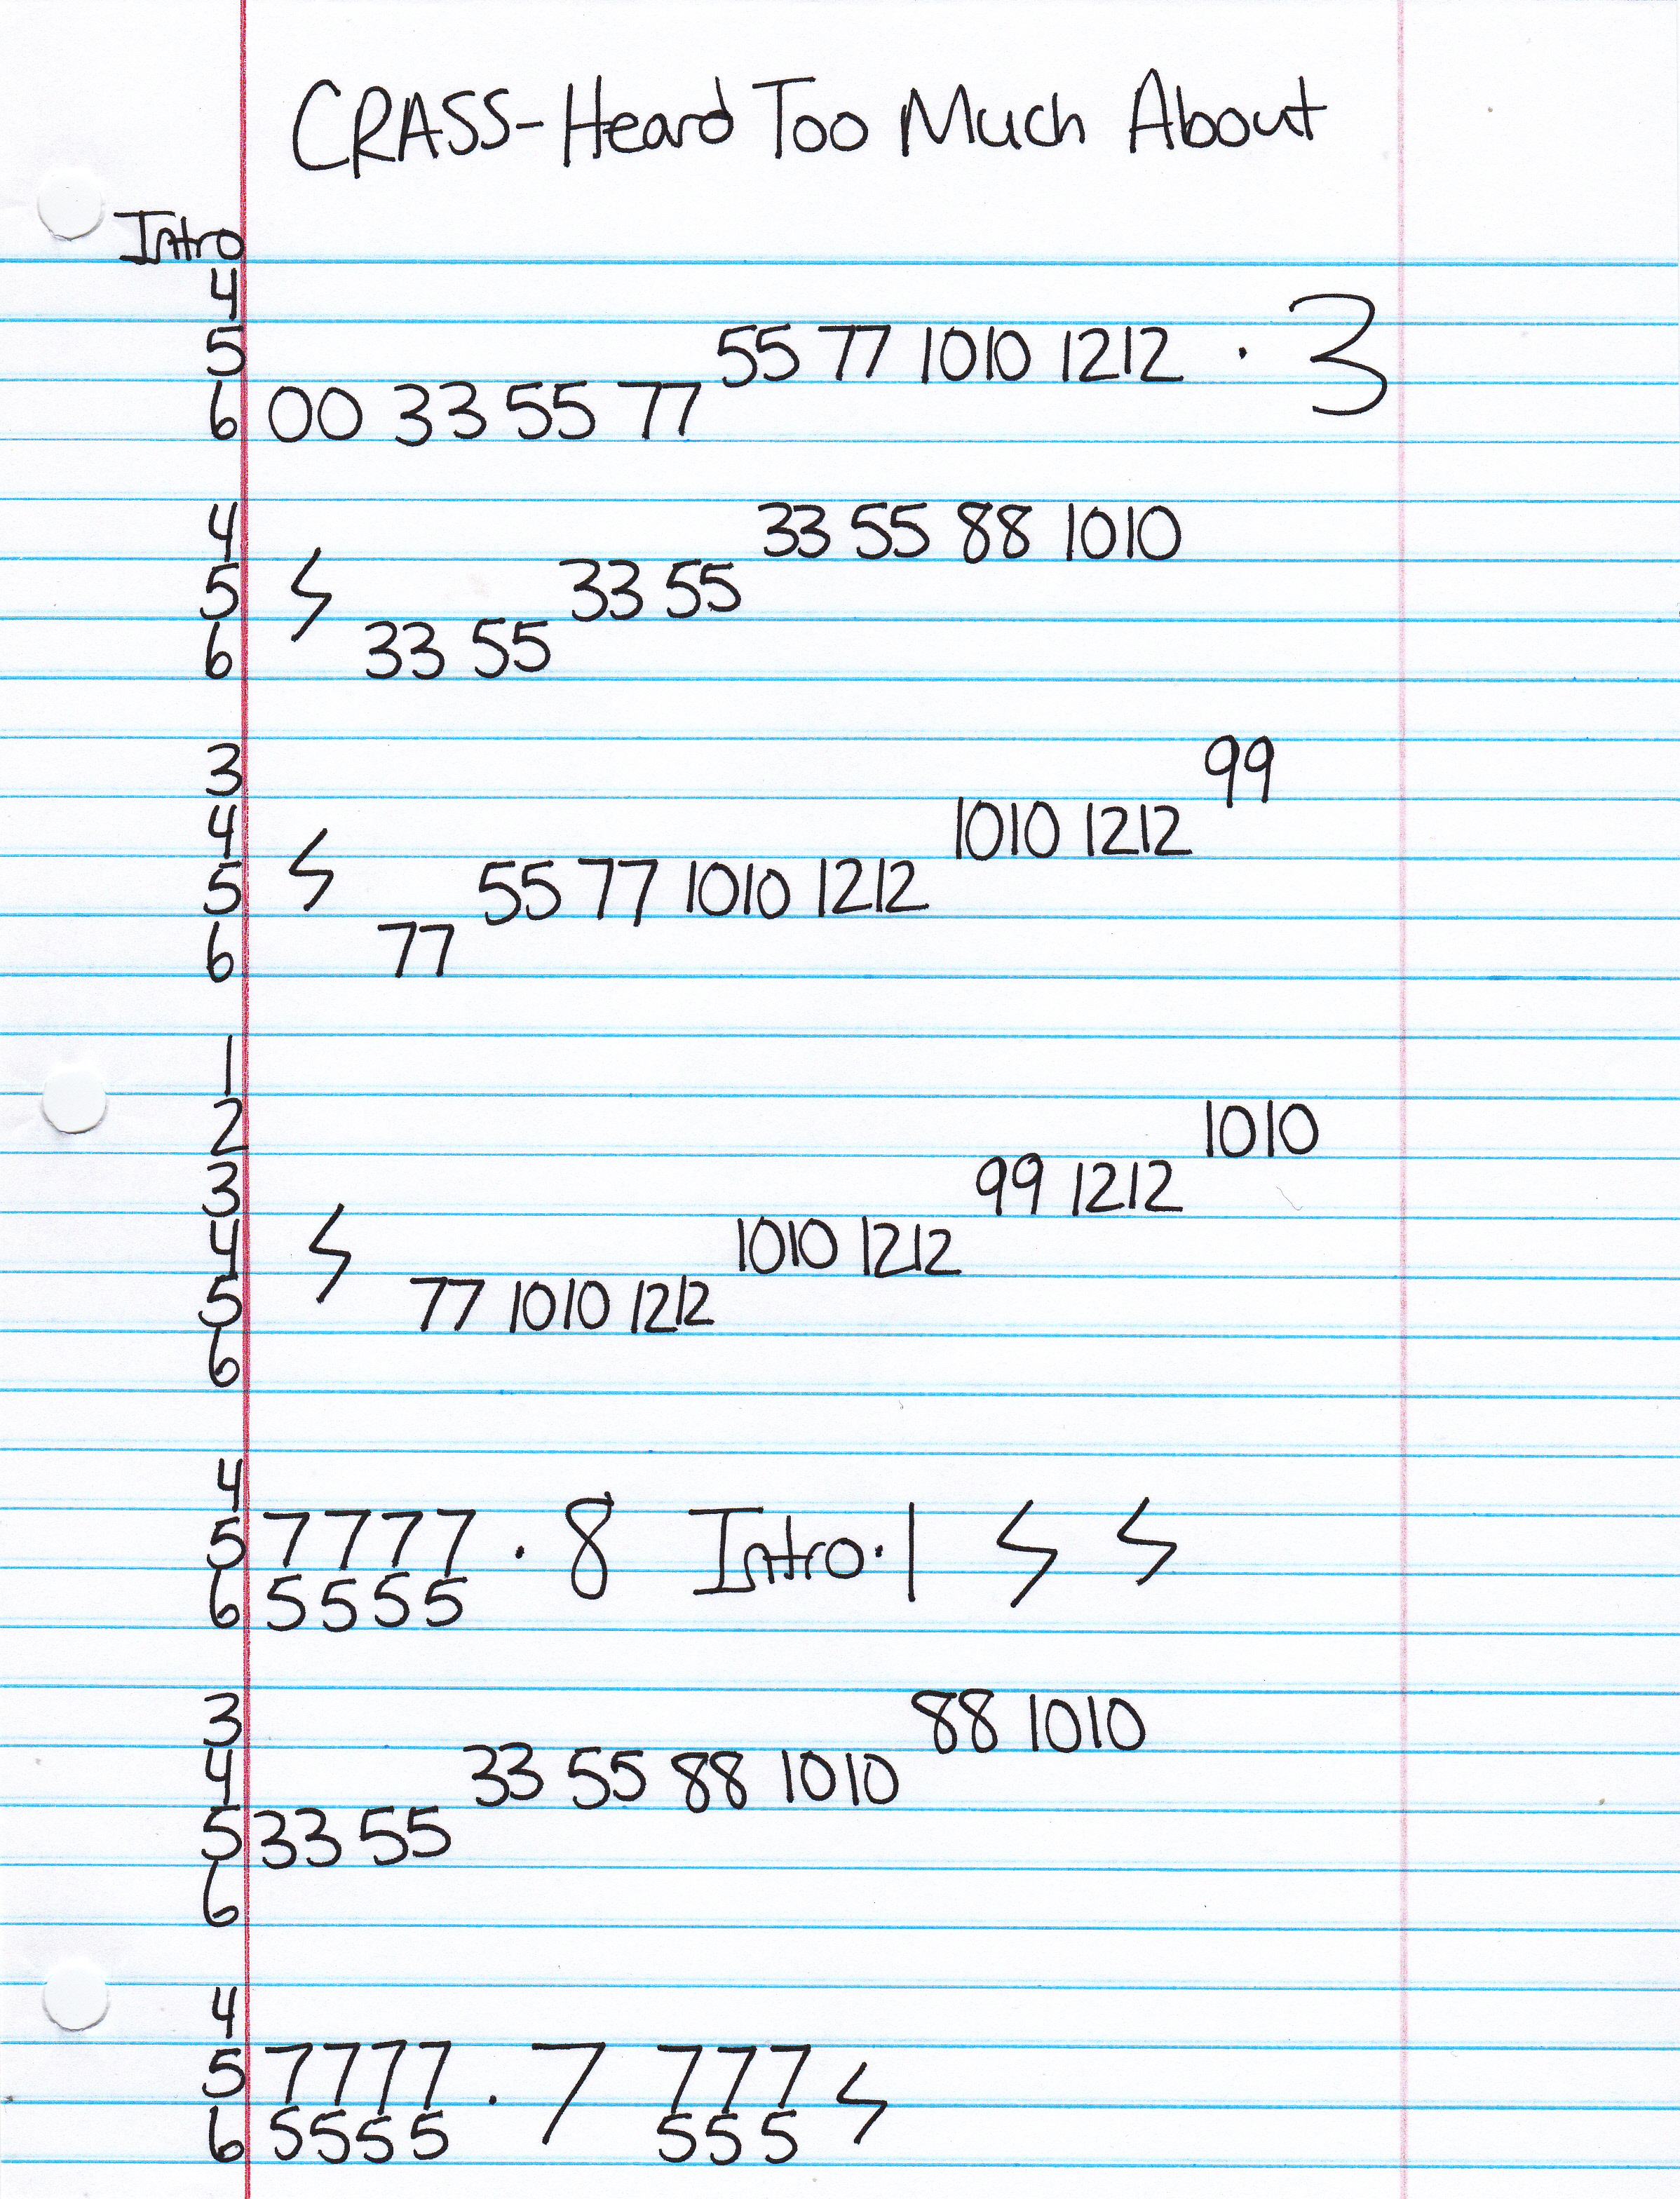 CRASS-Heard Too Much About
Intro
4
5 55 77 1010 1212 · 3
6 00 33 55 77
4 33 55 88 1010
5 33 55
6 33 55
3 99
4 1010 1212
5 55 77 1010 1212
6 77
1
2 1010
3 99 1212
4 1010 1212
5 77 1010 1212
6
4
5 7777 · 8 Intro·1
6 5555
3 88 1010
4 33 55 88 1010
5 33 55
6
4
5 7777 · 7 777
6 5555 555